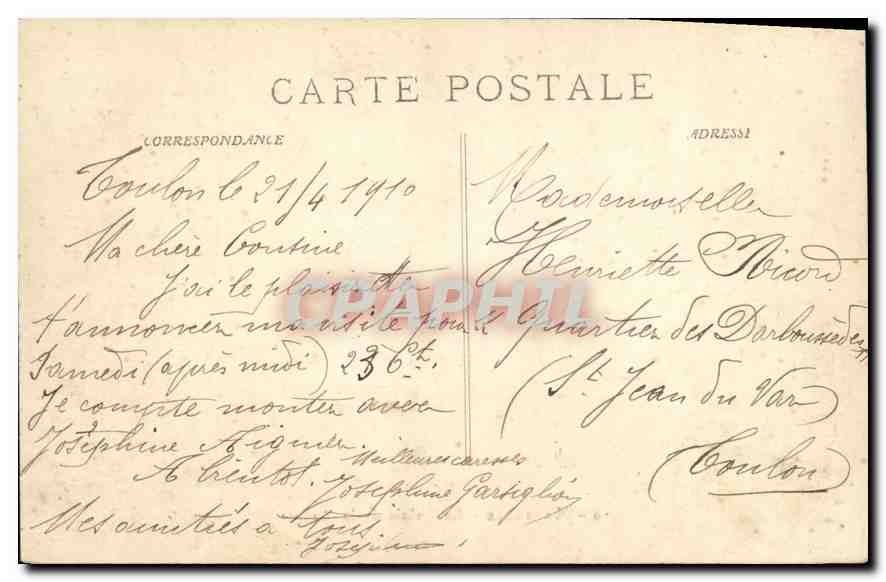 CARTE POSTALE
CORRESPONDANCE
Toulon le 21/4 1910
Ma chère Cousine
J'ai le plaisir de
t'annoncer ma visite pour le
Samedi (après midi) 23 Ct.
Je compte monter avec
Joséphine Aignier.
A bientôt. Meilleures caresses
Joséphine
Mes amitiés à tous
ADRESSE
Mademoiselle
Henriette Ricord
Quartier des Darboussèdes
(St Jean du Var)
(Toulon)
CPAPHIL